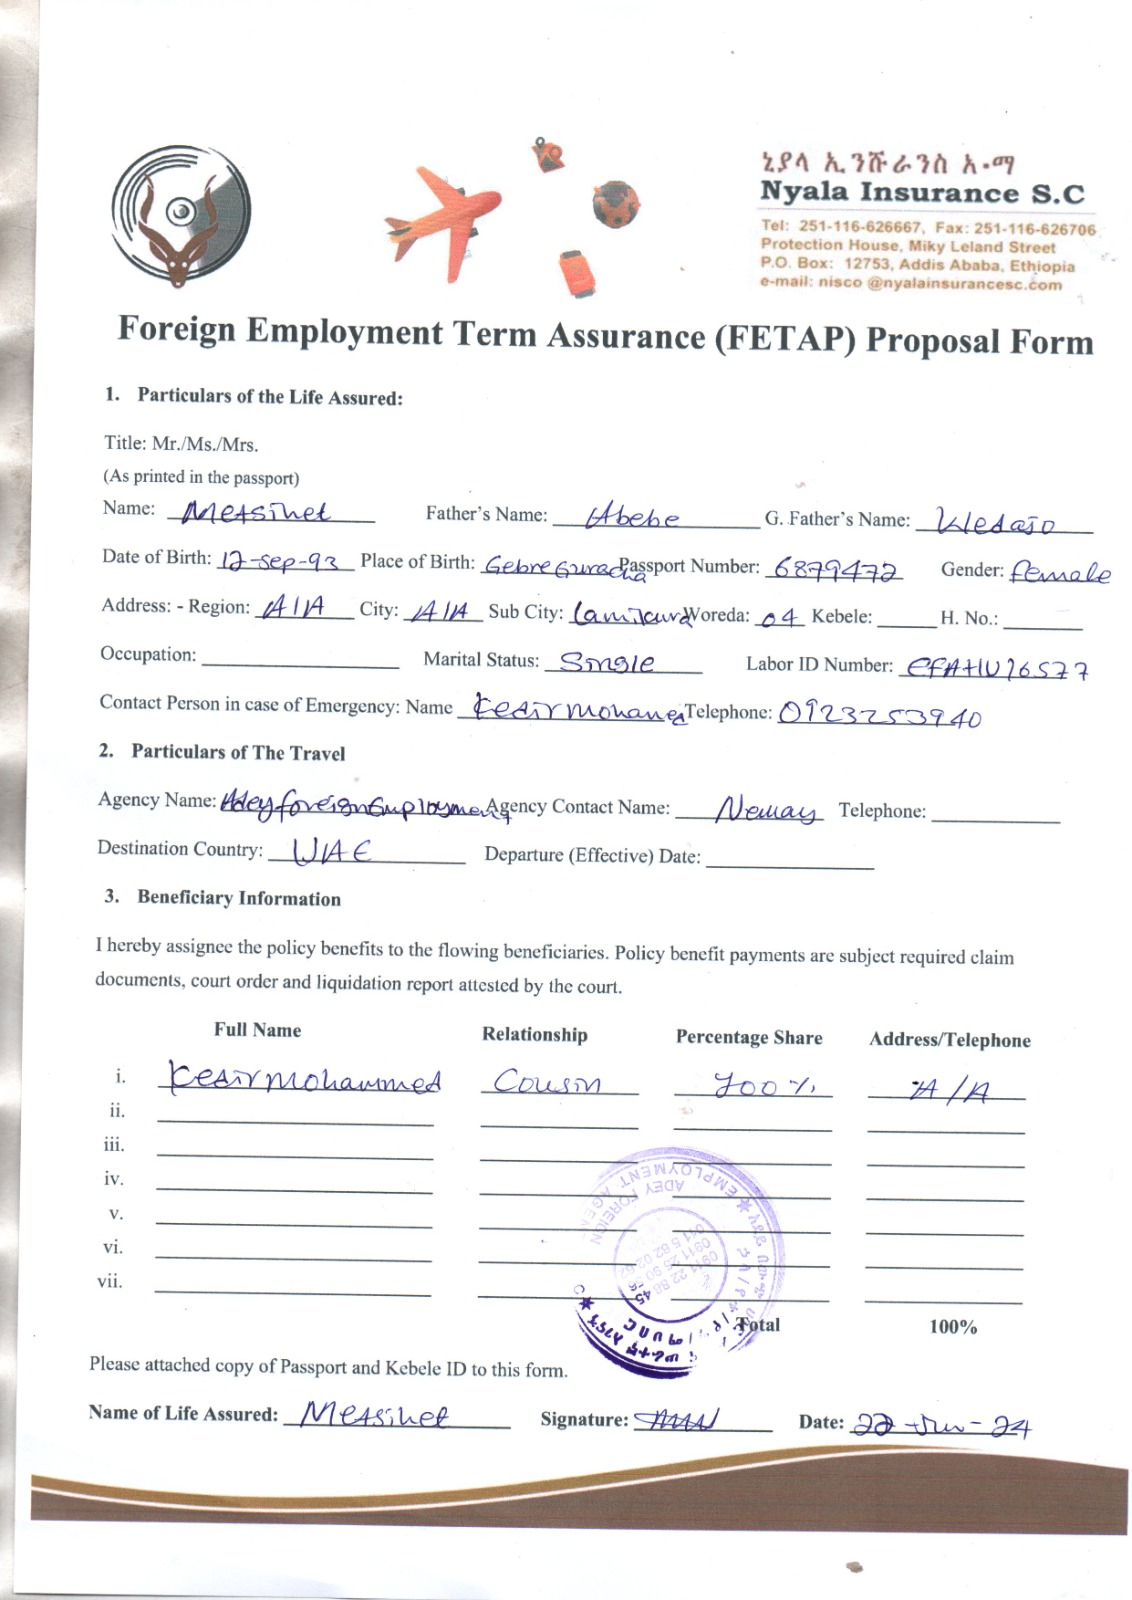 ኒያላ ኢንሹራንስ አ.ማ
Nyala Insurance S.C
Tel: 251-116-626667, Fax: 251-116-626706
Protection House, Miky Leland Street
P.O. Box: 12753, Addis Ababa, Ethiopia
e-mail: nisco @nyalainsurancesc.com
Foreign Employment Term Assurance (FETAP) Proposal Form
1. Particulars of the Life Assured:
Title: Mr./Ms./Mrs.
(As printed in the passport)
Name: Metsihet Father's Name: Abebe G. Father's Name: Wedajo
Date of Birth: 12-sep-93 Place of Birth: Gebre Guracha Passport Number: 6879472 Gender: female
Address: - Region: A/A City: A/A Sub City: Woreda: 04 Kebele: H. No.:
Occupation: Marital Status: Single Labor ID Number:
Contact Person in case of Emergency: Name Kedir Telephone: 0923253940
2. Particulars of The Travel
Agency Name: Adey foreign Employment Agency Contact Name: Telephone:
Destination Country: UAE Departure (Effective) Date:
3. Beneficiary Information
I hereby assignee the policy benefits to the flowing beneficiaries. Policy benefit payments are subject required claim
documents, court order and liquidation report attested by the court.
Full Name Relationship Percentage Share Address/Telephone
i. Kedir mohammed Cousin 100% A/A
ii.
iii.
iv.
v.
vi.
vii.
ADEY FOREIGN EMPLOYMENT AGENT
Total 100%
Please attached copy of Passport and Kebele ID to this form.
Name of Life Assured: Metsihet Signature: Date: 22-Jun-24